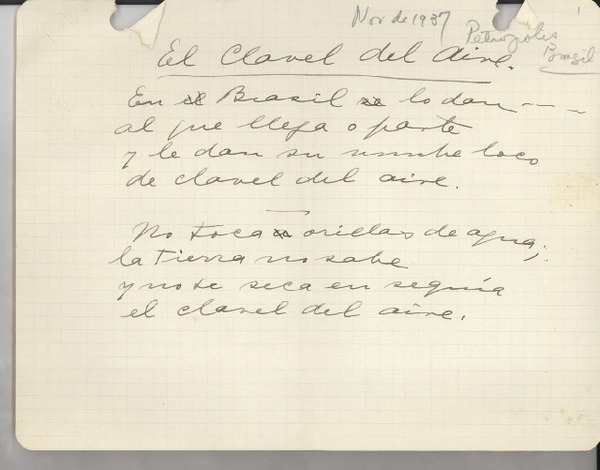 Nov de 1937
Petrópolis
Brasil
1
El Clavel del Aire.
En el Brasil se lo dan ----
al que llega o parte
y le dan su nombre loco
de clavel del aire.
No toca orillas de agua;
la tierra no sabe
y no se seca en seguía
el clavel del aire.